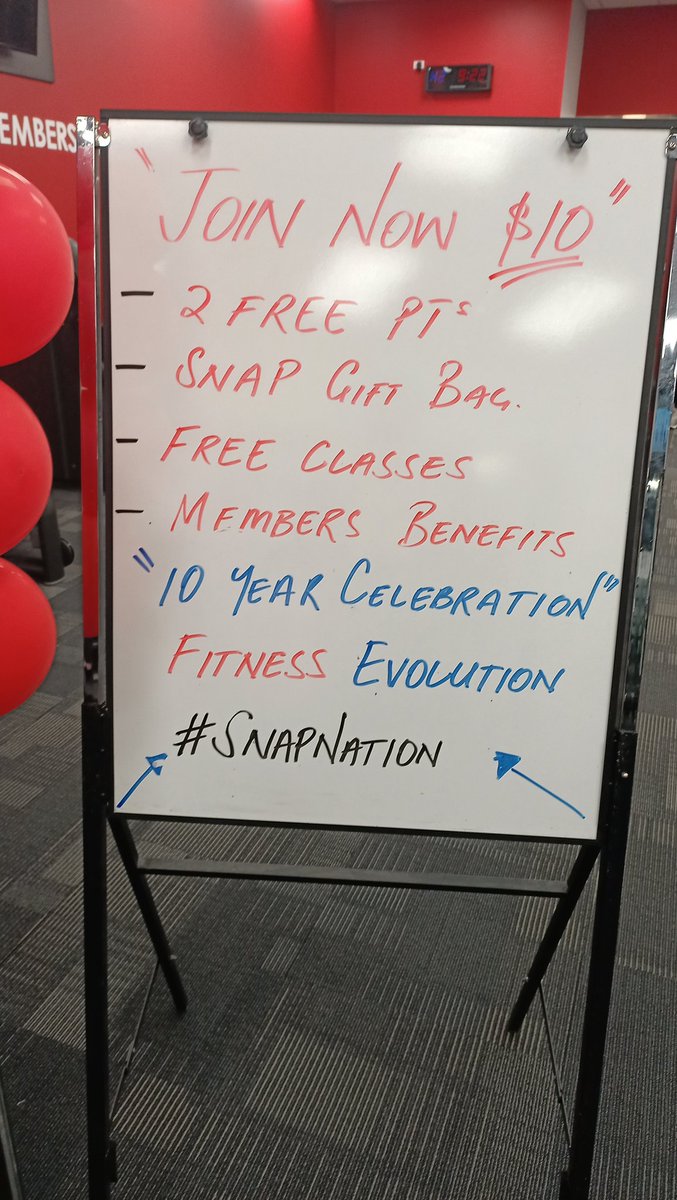 EMBERS
9:22
"JOIN NOW $10"
- 2 FREE PTs
- SNAP GIFT BAG.
- FREE CLASSES
- MEMBERS BENEFITS
"10 YEAR CELEBRATION"
FITNESS EVOLUTION
#SNAPNATION